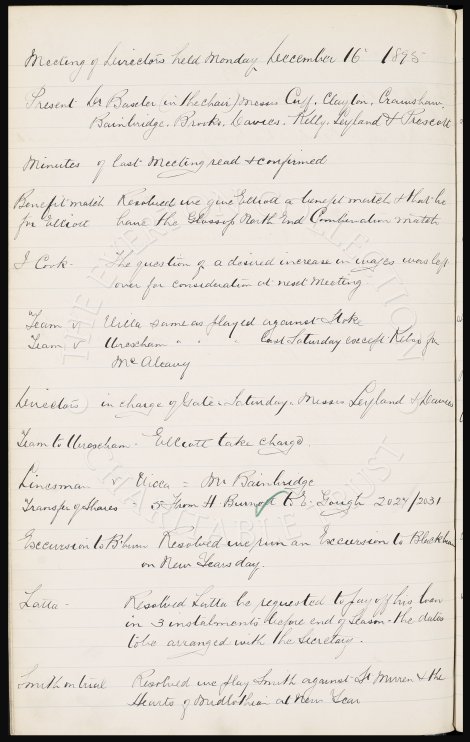 Meeting of Directors held Monday December 16th 1895
Present Dr Baxter in the chair, Messrs Cuff, Clayton, Crawshaw,
Bainbridge, Brooks, Davies, Kelly, Leyland & Prescott
Minutes of last Meeting read & confirmed
Benefit match Resolved we give Elliott a benefit match & that he
for Elliott have the Glossop North End Combination match
J Cook - The question of a desired increase in wages was left
over for consideration at next Meeting
Team v Villa same as played against Stoke
Team v Wrexham " " " last Saturday except Kelso for
McAleavy
Directors in charge of Gate - Saturday - Messrs Leyland & Davies
Team to Wrexham - Elliott take charge.
Linesman v Villa = Mr Bainbridge
Transfer of Shares - 5 from H. to E. Gough 2027/2031
Excursion to B'burn Resolved we run an Excursion to Blackburn
on New Years day.
Latta - Resolved Latta be requested to pay off his loan
in 3 instalments before end of season - the dates
to be arranged with the Secretary.
Smith on trial Resolved we play Smith against St Mirren & the
Hearts of Midlothian at New Year
THE EVERTON COLLECTION
CHARITABLE TRUST